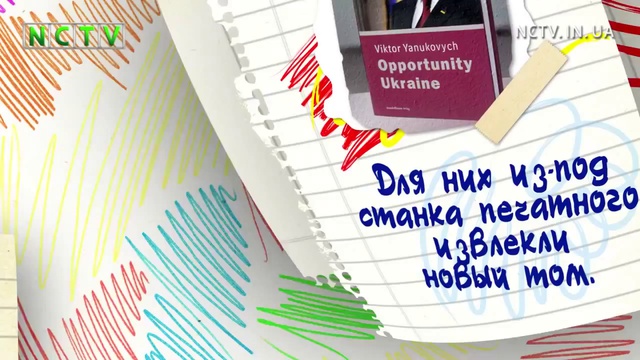 NCTV
NCTV.IN.UA
Viktor Yanukovych
Opportunity
Ukraine
Для них из-под
станка печатного
извлекли
новый том.